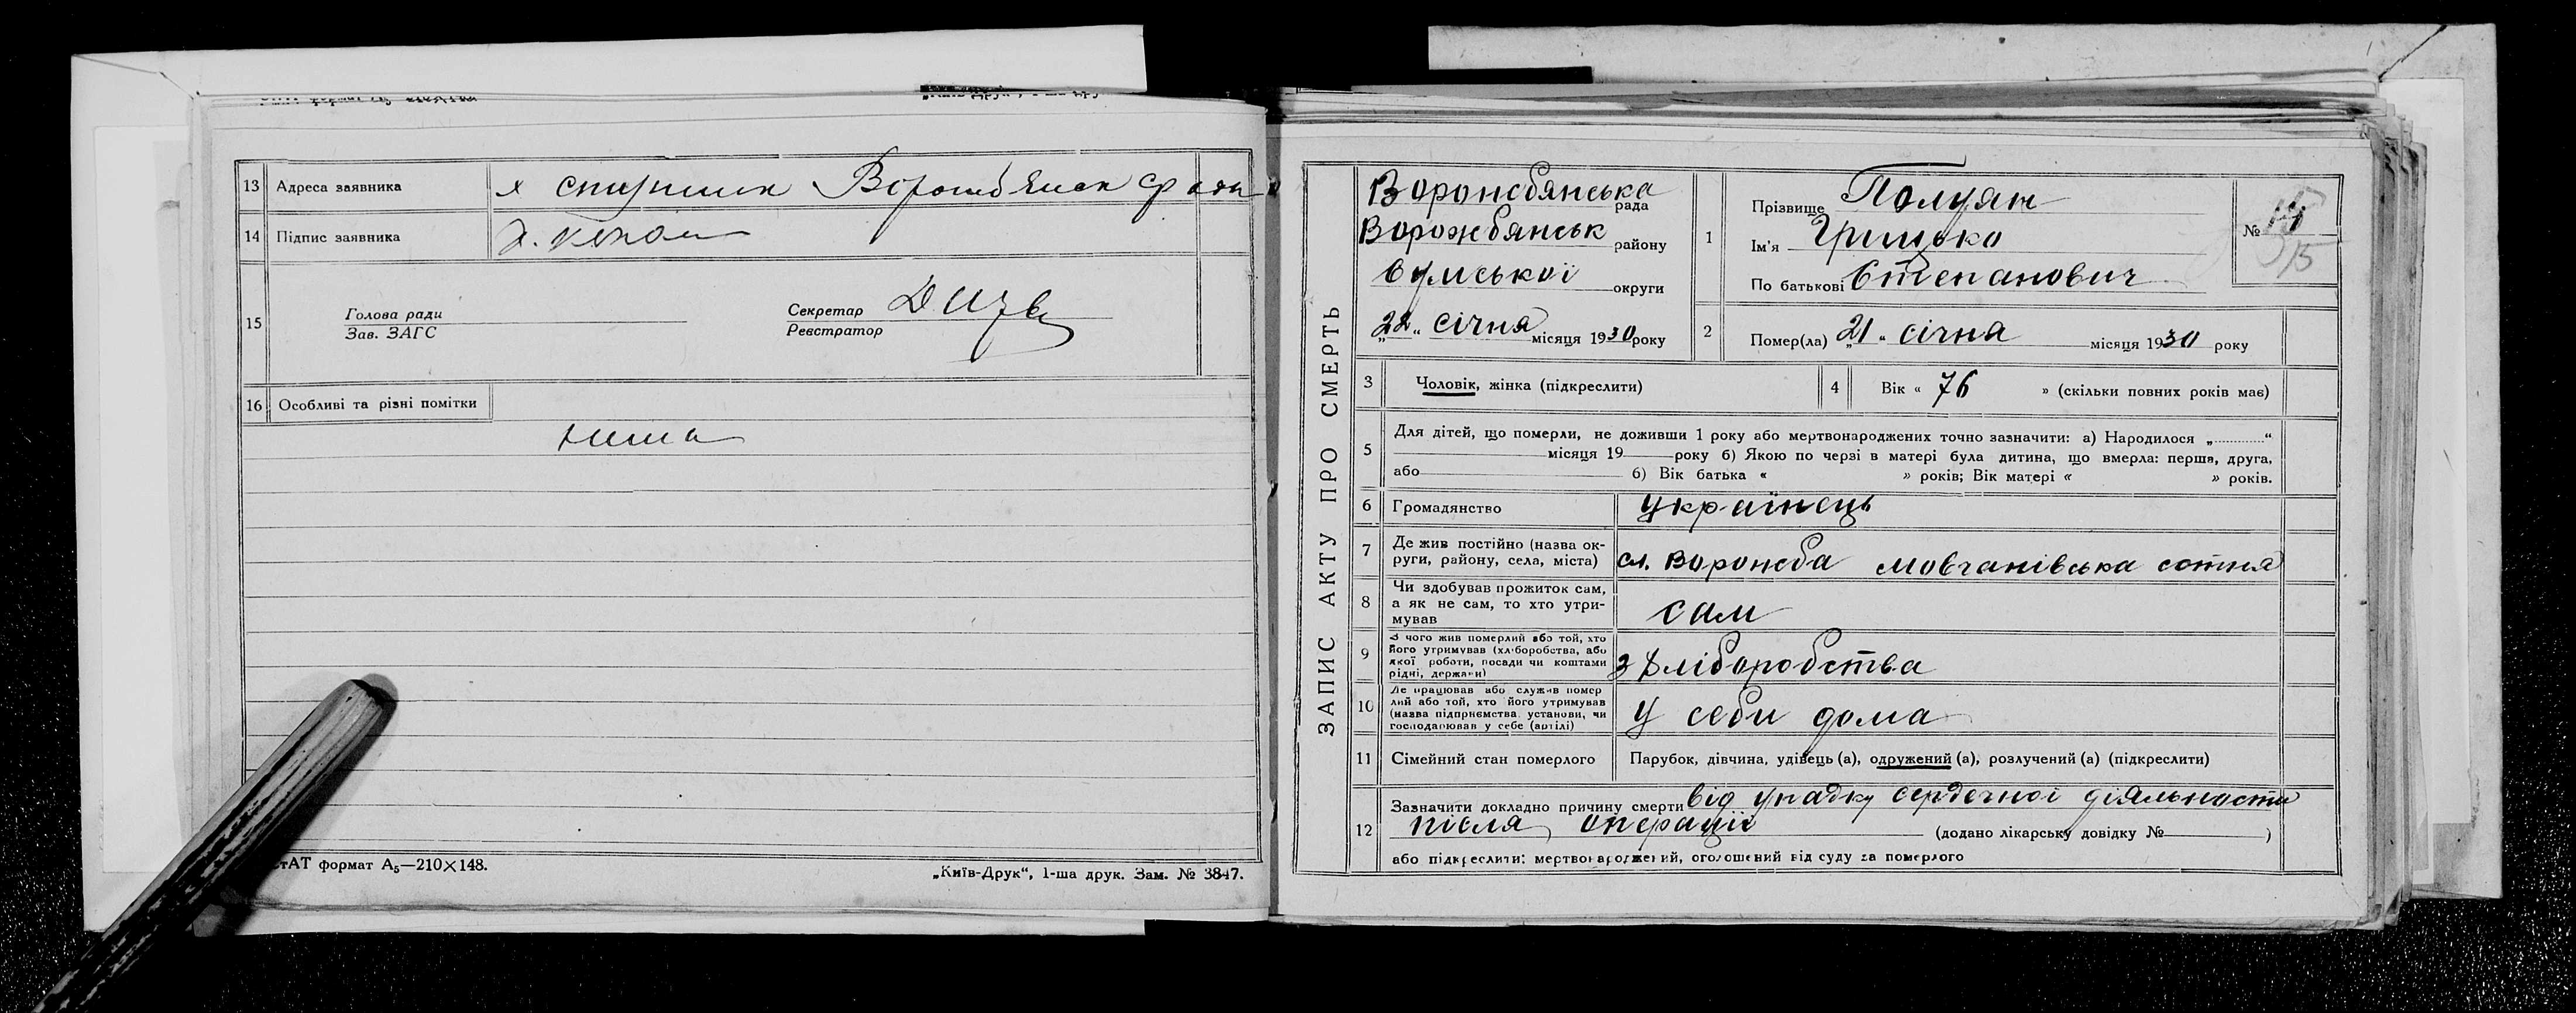 13 Адреса заявника х Ворожбянск
14 Підпис заявника
15 Голова ради
Зав. ЗАГС
Секретар
Реєстратор
16 Особливі та різні помітки
нима
стАТ формат А5—210×148.
„Київ-Друк“, 1-ша друк. Зам. № 3847.
ЗАПИС АКТУ ПРО СМЕРТЬ
Ворожбянська рада
Ворожбянськ району
Сумської округи
„22“ січня місяця 1930 року
1 Прізвище Полуян
Ім'я Грицько
По батькові Степанович
№ 15
2 Помер(ла) „21“ січня місяця 1930 року
3 Чоловік, жінка (підкреслити)
4 Вік « 76 » (скільки повних років має)
5 Для дітей, що померли, не доживши 1 року або мертвонароджених точно зазначити: а) Народилося „ “
місяця 19 року б) Якою по черзі в матері була дитина, що вмерла: перша, друга,
або б) Вік батька « » років; Вік матері « » років.
6 Громадянство українець
7 Де жив постійно (назва ок-
руги, району, села, міста) сл. Ворожба Мовчанівська сотня
8 Чи здобував прожиток сам,
а як не сам, то хто утри-
мував сам
9 З чого жив померлий або той, хто
його утримував (хліборобства, або
якої роботи, посади чи коштами
рідні, держави) з хліборобства
10 Де працював або служив помер
лий або той, хто його утримував
(назва підприємства, установи, чи
господарював у себе (артілі) у себи дома
11 Сімейний стан померлого Парубок, дівчина, удівець (а), одружений (а), розлучений (а) (підкреслити)
12 Зазначити докладно причину смерти від упадку сердечної діяльности
після операції (додано лікарську довідку № )
або підкреслити: мертвонароджений, оголошений від суду за померлого